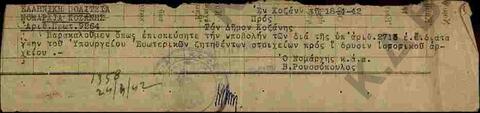 ΕΛΛΗΝΙΚΗ ΠΟΛΙΤΕΙΑ
ΝΟΜΑΡΧΙΑ ΚΟΖΑΝΗΣ
Ἀριθ.Πρωτ.9264
Ἐν Κοζάνῃ 18-4-42
Πρός
Τόν Δῆμον Κοζάνης
Παρακαλοῦμεν ὅπως ἐπισπεύσητε τήν ὑποβολήν τῶν διά τῆς ὑπ' ἀριθ.2715 διατα
γῆς τοῦ Ὑπουργείου Ἐσωτερικῶν ζητηθέντων στοιχείων πρός ἵδρυσιν ἱστορικοῦ ἀρ-
χείου.-
Ὁ Νομάρχης κ.ἀ.α.
Β.Ρουσόπουλος
1958
24/4/42